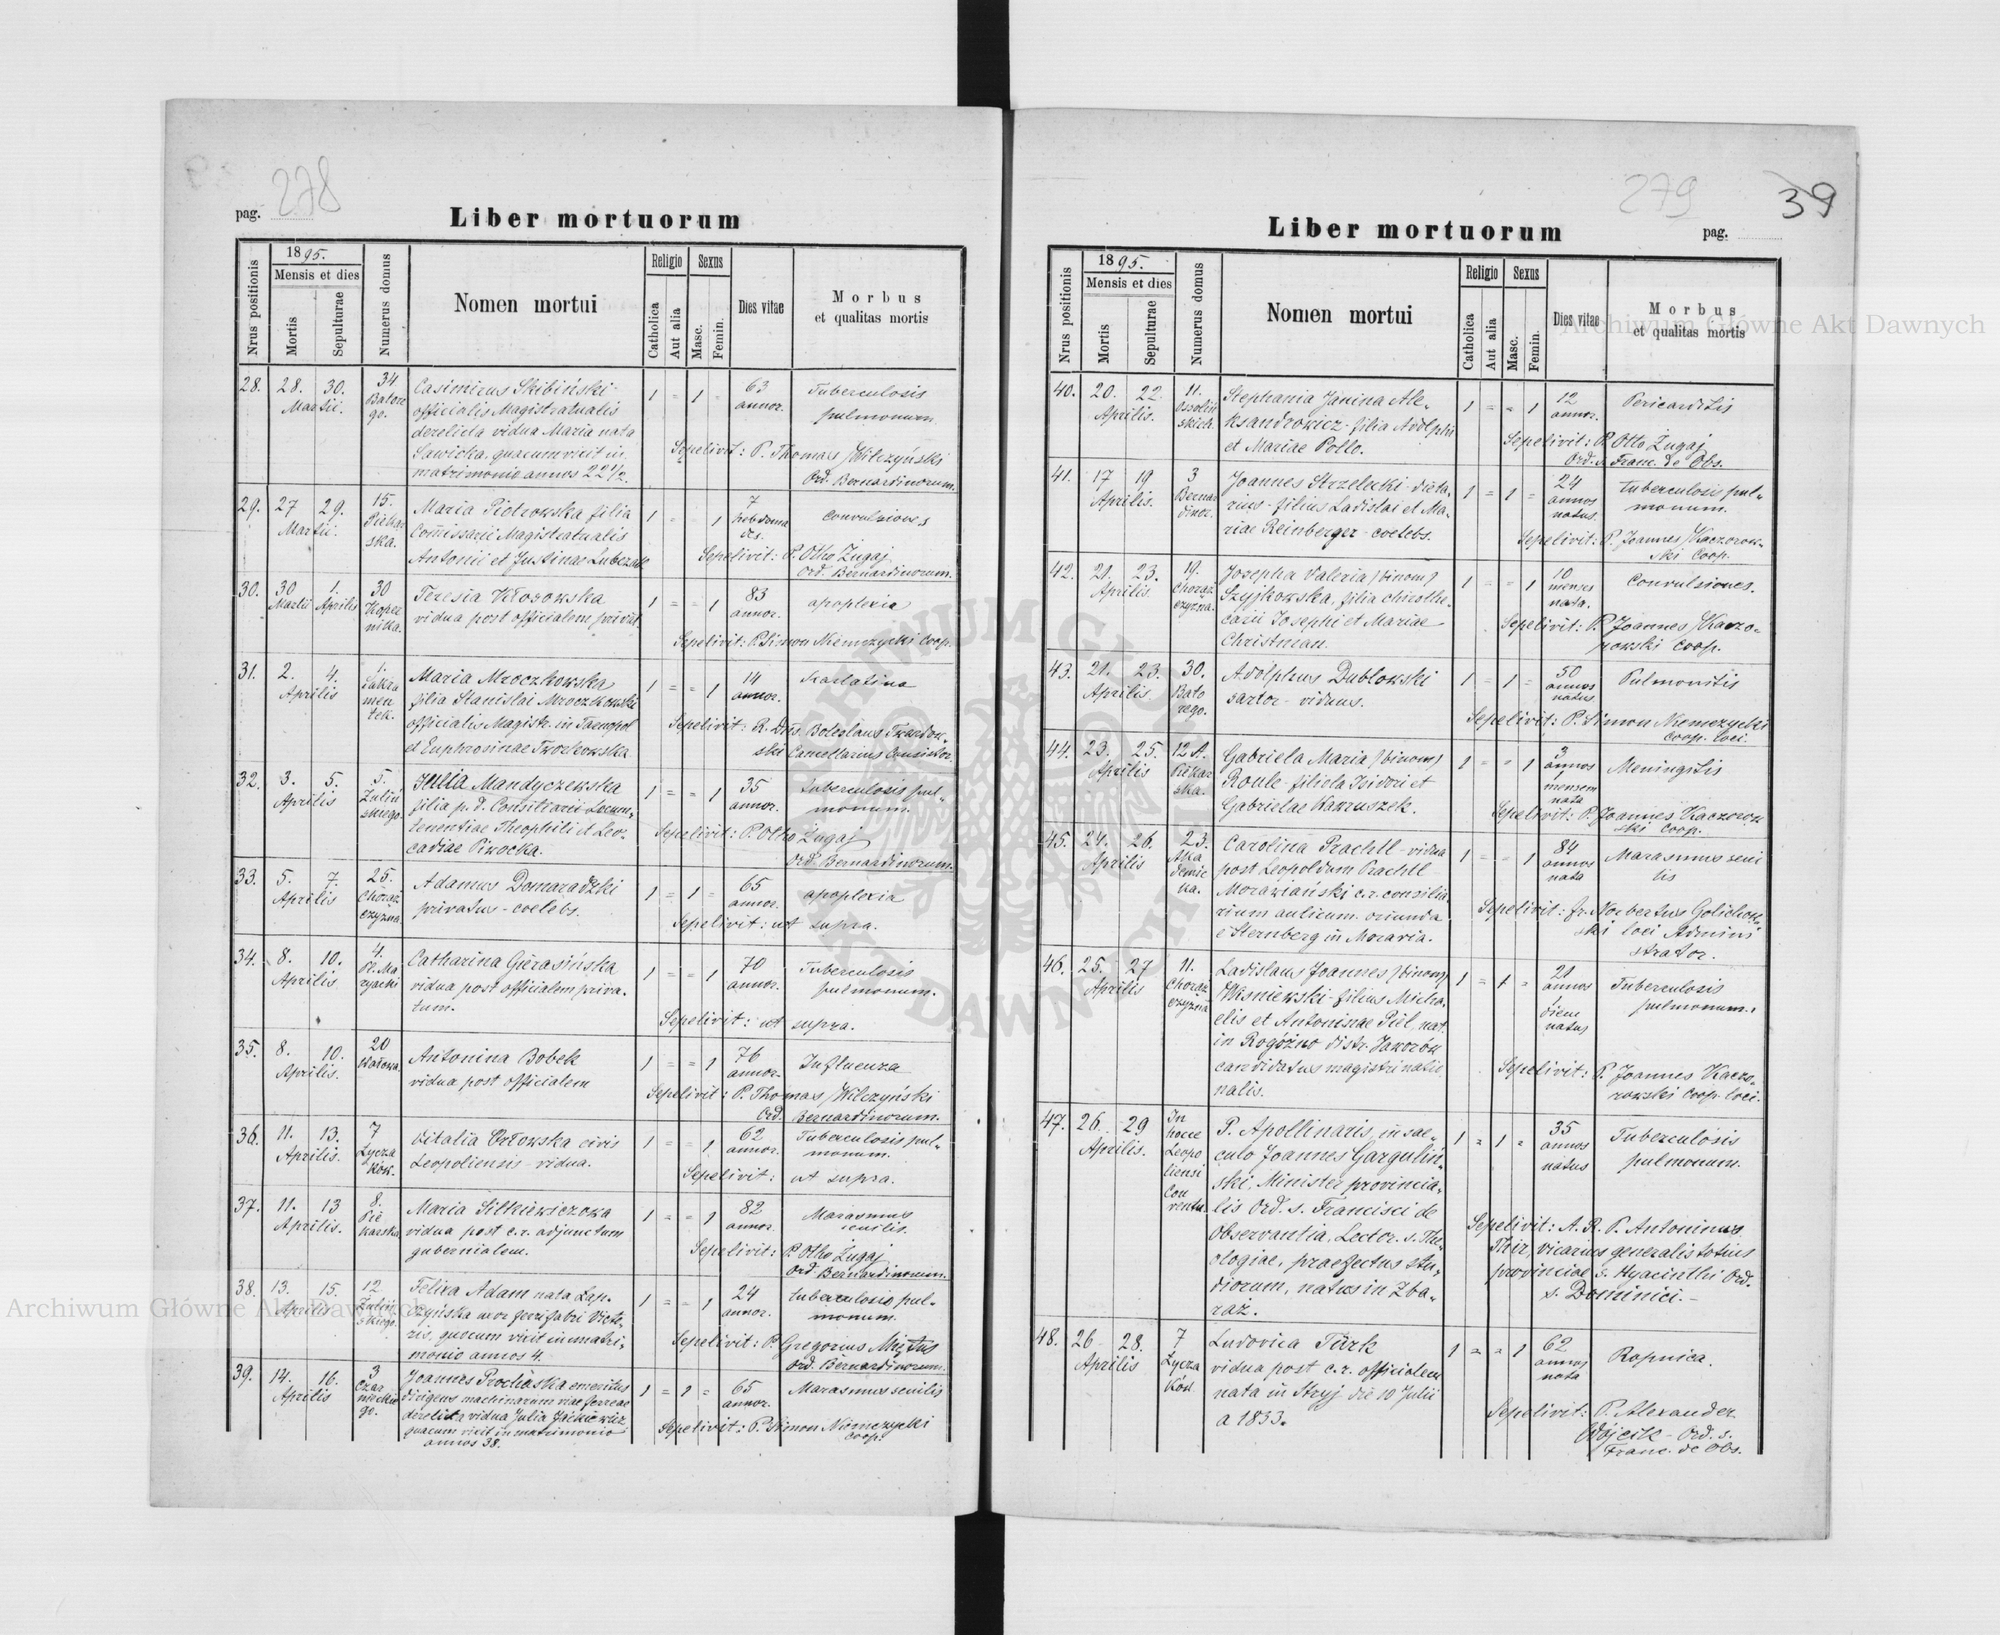 278
pag.
Liber mortuorum
Nrus positionis
1895.
Mensis et dies
Mortis
Sepulturae
Numerus domus
Nomen mortui
Religio
Catholica
Aut alia
Sexus
Masc.
Femin.
Dies vitae
Morbus
et qualitas mortis
28. 28. 30. Martii. 34 Batorego.
Casimirus Skibiński
officialis Magistratualis
derelicta vidua Maria nata
Sawicka quacum vixit in
matrimonio annos 22 1/2.
1 = 1 =
63
annor.
Tuberculosis
pulmonum
Sepelivit: P. Thomas Wilczyński
Ord. Bernardinorum.
29. 27 29. Martii. 15. Piekarska.
Maria Piotrowska filia
Com̄issarii Magistratualis
Antonii et Justinae Lubczak
1 = 1
7
hebdoma
des.
Convulsiones
Sepelivit: P. Otho Żugaj
Ord. Bernardinorum.
30. 30 Martii 1. Aprilis 30 Kopernika.
Teresia Kłosowska
vidua post officialem privat.
1 = = 1
83
annor.
apoplexia
Sepelivit: P. Simon Niemczycki Coop.
31. 2. 4. Aprilis 1. Sakramentek.
Maria Mroczkowska
filia Stanislai Mroczkowski
officialis Magistr. in Tarnopol
et Euphrosinae Tworkowska
1 = = 1
14
annor.
Skarlatina
Sepelivit: R. Dn̄s Boleslaus Twardow-
ski Cancellarius Consistor.
32. 3. 5. Aprilis 5. Zulińskiego
Julia Mandyczewska
filia p. d. Consiliarii Locum-
tenentiae Theophili et Leo-
cadiae Piwocka.
1 = = 1
35
annor.
tuberculosis pul-
monum.
Sepelivit: P. Otho Żugaj
Ord. Bernardinorum.
33. 5. 7. Aprilis 25. Chorążczyzna
Adamus Domaradzki
privatus - coelebs.
1 = 1 =
65
annor.
apoplexia
Sepelivit: ut supra.
34. 8. 10. Aprilis 4. Pl. Maryacki
Catharina Gierasińska
vidua post officialem priva-
tum.
1 = = 1
70
annor.
Tuberculosis
pulmonum.
Sepelivit: ut supra.
35. 8. 10. Aprilis. 20 Wałowa
Antonina Bobek
vidua post officialem
1 = = 1
76
annor.
Influenza
Sepelivit: P. Thomas Wilczyński
Ord. Bernardinorum.
36. 11. 13. Aprilis. 7 Łyczaków.
Vitalia Orłowska civis
Leopoliensis - vidua.
1 = = 1
62
annor.
Tuberculosis pul-
monum.
Sepelivit: ut supra.
37. 11. 13 Aprilis. 8. Piekarska
Maria Sitkiewiczowa
vidua post c.r. adjunctum
gubernialem.
1 = = 1
82
annor.
Marasmus
senilis.
Sepelivit: P. Otho Żugaj
Ord. Bernardinorum.
38. 13. 15. Aprilis 12. Zulińskiego.
Felixa Adam nata Łap-
czyńska uxor ferrifabri Victo-
ris, quocum vixit in matri-
monio annos 4.
1 = = 1
24
annor.
tuberculosis pul-
monum.
Sepelivit: P. Gregorius Mixtus
Ord. Bernardinorum.
39. 14. 16. Aprilis 3 Czarnieckiego.
Joannes Prochaska emeritus
dirigens machinarum viae ferreae
derelicta vidua Julia Jackiewicz
quacum vixit in matrimonio
annos 38.
1 = 1 =
65
annor.
Marasmus senilis
Sepelivit: P. Simon Niemczycki
coop.
279 39
Liber mortuorum
pag.
Nrus positionis
1895.
Mensis et dies
Mortis
Sepulturae
Numerus domus
Nomen mortui
Religio
Catholica
Aut alia
Sexus
Masc.
Femin.
Dies vitae
Morbus
et qualitas mortis
40. 20. 22. Aprilis. 11. Ossolińskich.
Stephania Janina Ale-
ksandrowicz - filia Adolphi
et Mariae Pollo.
1 = = 1
12
annor.
Pericarditis
Sepelivit: P. Otto Żugaj
Ord. s. Franc. de Obs.
41. 17 19 Aprilis. 3 Bernardinor.
Joannes Strzelecki - dieta-
rius - filius Ladislai et Ma-
riae Reinberger - coelebs.
1 = 1 =
24
annos
natus.
tuberculosis pul-
monum.
Sepelivit: P. Joannes Kaczorow-
ski Coop.
42. 21. 23. Aprilis 19. Chorążczyzna.
Josepha Valeria /binom/
Szyjkowska, filia chirothe-
carii Josephi et Mariae
Christman.
1 = = 1
10
menses
nata.
Convulsiones.
Sepelivit: P. Joannes Kaczo-
rowski Coop.
43. 21. 23. Aprilis 30. Batorego.
Adolphus Dubłowski
sartor - viduus.
1 = 1 =
50
annos
natus
Pulmonitis
Sepelivit: P. Simon Niemczycki
coop. loci.
44. 23. 25. Aprilis 12 A. Piekarska.
Gabriela Maria /binom/
Roule - filiola Isidori et
Gabrielae Karruszek.
1 = = 1
3
annos
1
mensem
nata
Meningitis
Sepelivit: P. Joannes Kaczorow
ski Coop.
45. 24. 26. Aprilis 23. Akademicka.
Carolina Prachtl - vidua
post Leopoldum Prachtl
Morawiański c.r. consilia
rium aulicum. oriunda
e Sternberg in Moravia.
1 = = 1
84
annos
nata
Marasmus seni
lis
Sepelivit: fr. Norbertus Golichow-
ski loci Admini
strator.
46. 25. 27 Aprilis 11. Chorążczyzna
Ladislaus Joannes /binom/
Wisniewski - filius Micha-
elis et Antoninae Piel, nat.
in Rogóźno distr. Jaworów
candidatus magistri natio
nalis.
1 = 1 =
21
annos
1
diem
natus
Tuberculosis
pulmonum.
Sepelivit: P. Joannes Kaczo-
rowski Coop. loci.
47. 26. 29 Aprilis. In hocce Leopoliensi Conventu
P. Apollinaris, in sae-
culo Joannes Gargulin-
ski, Minister provincia-
lis Ord. s. Francisci de
Observantia, Lector. s. The-
ologiae, praefectus stu-
diorum, natus in Zba-
raż.
1 = 1 =
35
annos
natus
Tuberculosis
pulmonum.
Sepelivit: A. R. P. Antoninus
Thir, vicarius generalis totius
provinciae s. Hyacinthi Ord.
s. Dominici. -
48. 26 28. Aprilis 7 Łyczaków.
Ludovica Türk
vidua post c.r. officialem
nata in Stryj die 10 Julii
a 1833.
1 = = 1
62
annos
nata
Ropnica.
Sepelivit: P. Alexander
Wójcik - Ord. s.
Franc. de Obs.
Archiwum Główne Akt Dawnych
Archiwum Główne Akt Dawnych
ARCHIWUM GŁÓWNE AKT DAWNYCH